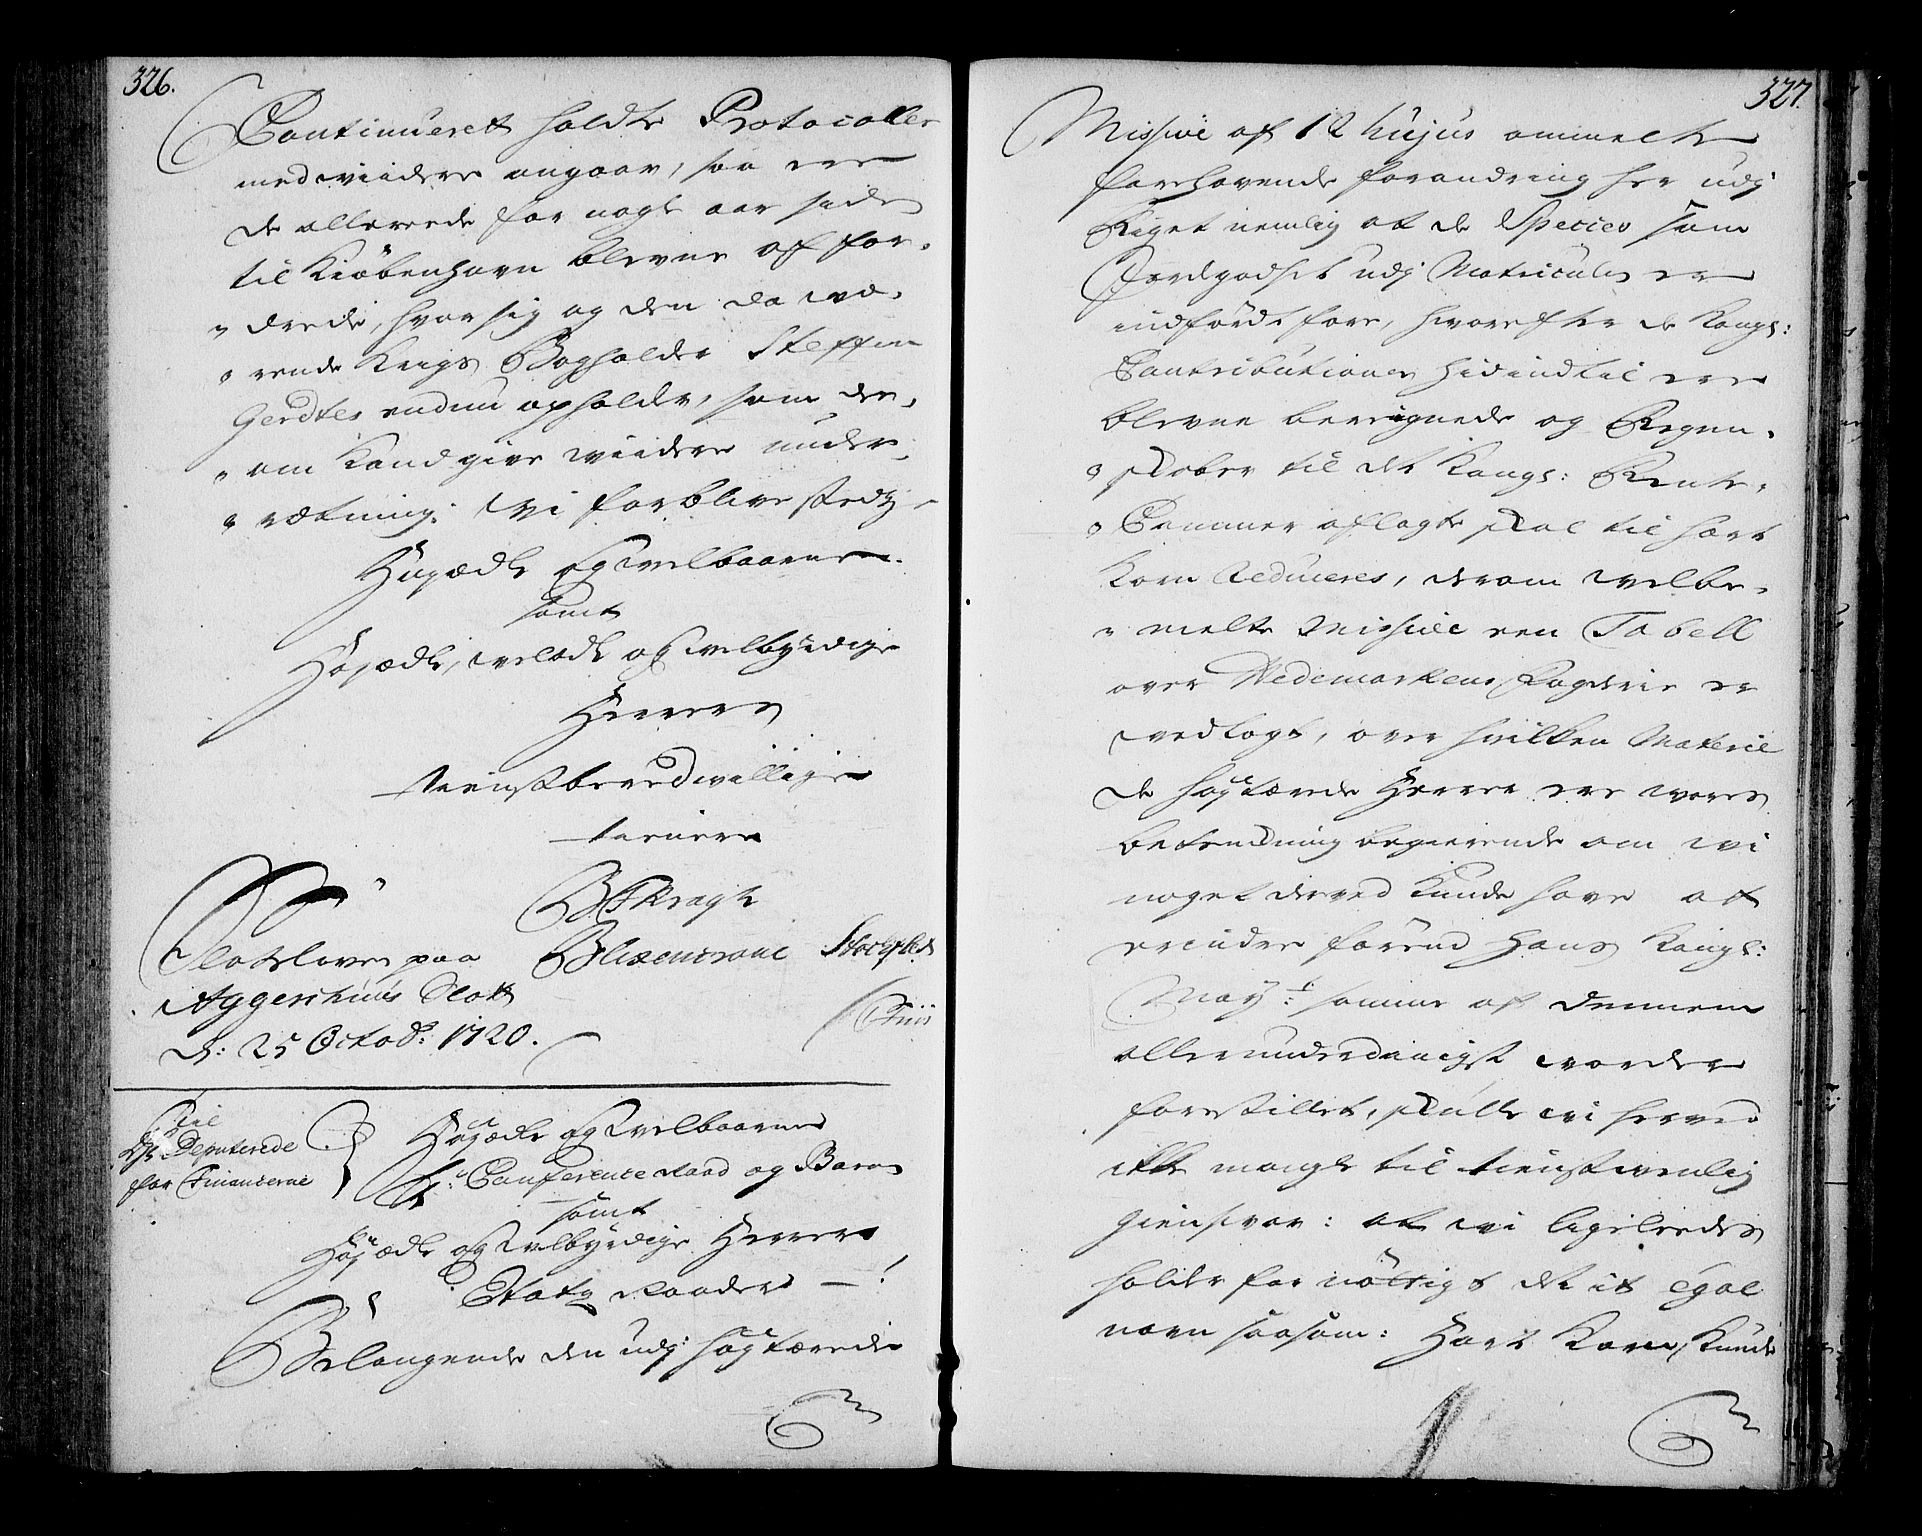 326.
Continueret holdte Protocoller
med viidere angaar, saa ere
de allerede for nogle aar siden
til Kiöbenhavn blevne affor-
drede, hvor sig og den da væ-
rende Krigs Bogholder Steffen
Gerdtes endnu opholder, som der-
om kand give viidere under-
rætning. Vi forblive stedze
Höyædle og Velbaarne
samt
Höyædle, velædle og velbyrdige
Herrers
tienstberedvilligste
tienere
Slotsloven paa
Aggershuus Slott
d: 25 Octobr: 1720.
B Kragh
Blixencrone
Til
de Deputerede
for Financerne
Höyædle og Velbaarne
Hr: Conference Raad og Baron
samt
Höyædle og Velbyrdige Herrer
Etatz Raader — !
Belangende den udj höystærede
327
Missive af 12 hujus ommelte
forehavende forandring her udj
Riget nemlig at de Species som
Jordgodset udj Matriculen er
indfördt fore, hvorefter de Kongl:
Contributioner hidindtil ere
blevne beregnede og Regne-
skaber til det Kongl: Rente-
Cammer aflagte skal til hart
Korn reduceres, derom velbe-
melte Missive een Tabell
over Hedemarkens Fogderie er
vedlagt, over hvilken Materie
de höystærede Herrer ere vores
betenkning begierende om vi
noget derved kunde have at
erindre förend Hans Kongl:
Mayt: samme af dennem
allerunderdanigst vorder
forestillet, skulle vi herved
ikke mangle til tienstvenlig
giensvar: at vi ligeleedes
holder for nöttigt det it egal
navn saasom: Hart Korn, kunde